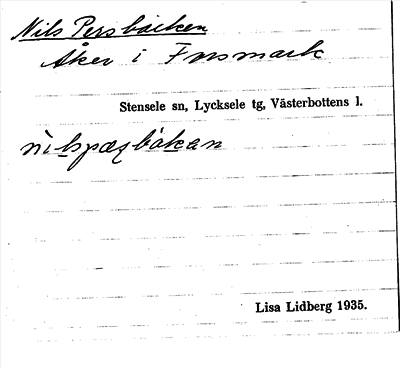 Nils Persbäcken
Åker i Fors­mark
Stensele sn, Lycksele tg, Västerbottens l.
Lisa Lidberg 1935.